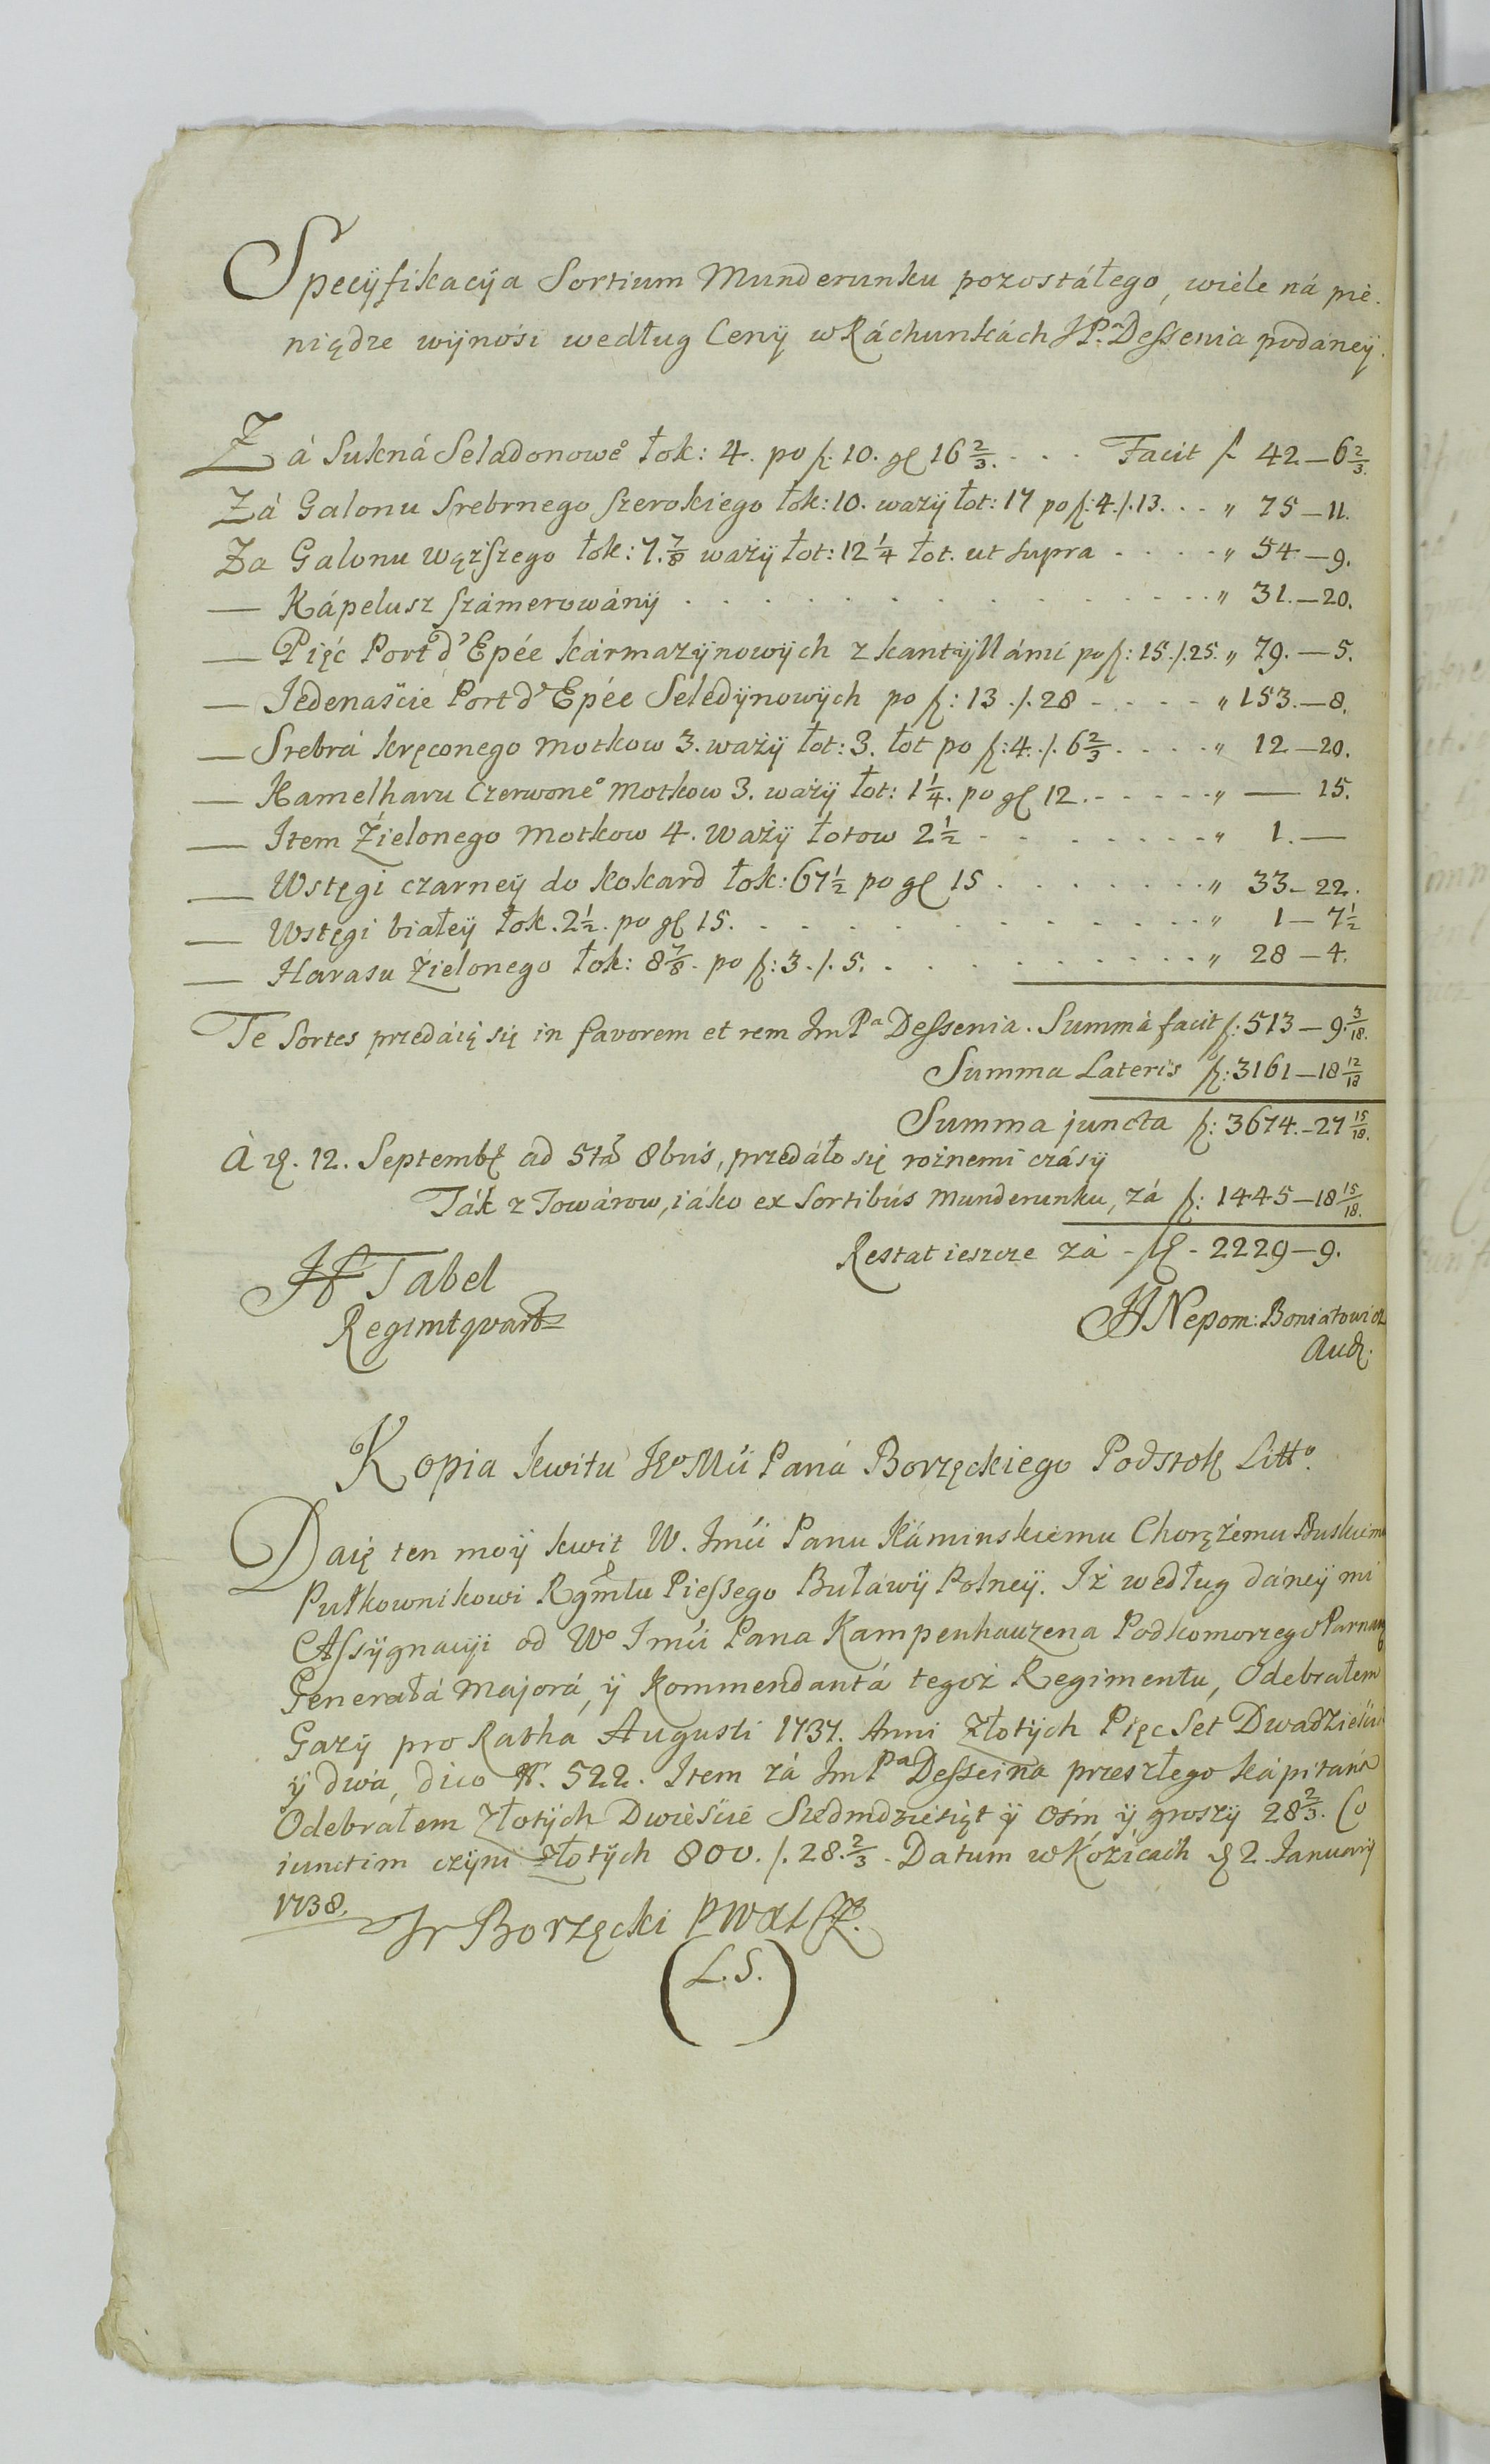 Specÿfikacÿa Sortium Munderunku pozostáłego, wiele ná pie-
niądze wÿnosi według Cenÿ w Ráchunkách JPª Dessenia podaneÿ.
Zá Sukná Seladonoweº łok: 4. po f: 10. gl 16 2/3. . . . Facit f 42–6 2/3.
Zá Galonu Srebrnego Szerokiego łok: 10. ważÿ łot: 17 po f: 4 ./. 13. . . „ 75–11.
Za Galonu Węższego łok: 7. 7/8 ważÿ łot: 12 1/4 łot. ut supra . . . . „ 54–9.
— Kápelusz számerowánÿ . . . . . . . . . . „ 31.–20.
— Pięć Port d'Epée kármazÿnowÿch z kantÿllámi po f: 15 ./. 25. „ 79.–5.
— Jedenaście Port d'Epée Seledÿnowÿch po f: 13 ./. 28 - . . - „ 153.–8.
— Srebrá kręconego motkow 3. ważÿ łot: 3. łot po f: 4. ./. 6 2/3 . . . . „ 12–20.
— Kamelharu Czerwoneº motkow 3. ważÿ łot: 1 1/4. po gl 12. - - - - „ — 15.
— Item Zielonego motkow 4. Ważÿ łotow 2 1/2 - - - - - - - „ 1.—
— Wstęgi czarneÿ do kokard łok: 67 1/2 po gl 15 . . . . . . . „ 33–22.
— Wstęgi białeÿ łok. 2 1/2. po gl 15. . . . . . . . . . „ 1–7 1/2
— Harasu Zielonego łok: 8 7/8. po f: 3 ./. 5. . . . . . . . . „ 28–4.
Te Sortes przedáią się in favorem et rem Jm Pª Dessenia. Summá facit f: 513–9. 3/18.
Summa Lateris f: 3161–18 12/18
Summa juncta f: 3674.–27 15/18.
A 12. Septemb ad 8bris, przedáło się rożnemi czásÿ
Ták z Towárow, iáko ex Sortibús Munderunku, zá f: 1445–18 15/18.
Restat ieszcze zá - fl - 2229–9.
Tabel
Regimtqvart
Nepom: Boniatowicz
Aud:
Kopia kwitu Wº Mći Paná Borzęckiego Podstol Littº.
Daię ten moÿ kwit W. Jmći Panu Kámińskiemu Chorążemu Buskiemu
Pułkownikowi Rgmtu Pieszego Buławÿ Polneÿ. Iż według dáneÿ mi
Assÿgnacÿi od Wº Jmći Pana Kampenhauzena Podkomorzego Parnaw
Generałá Majorá, ÿ Kommendantá tegoż Regimentu, Odebrałem
Gażÿ pro Ratha Augusti 1737. Anni Złotÿch Pięc Set Dwadzieścia
ÿ dwa, dico N. 522. Item zá Jm Pª Desseina przeszłego kápitana
Odebrałem Złotÿch Dwieście Siedmdziesiąt ÿ Ośm ÿ groszÿ 28 2/3. Co
iunctim czÿni złotÿch 800. ./. 28. 2/3. Datum w Kózicach d 2. Januarÿ
1738.
Jr Borzęcki
(L.S.)